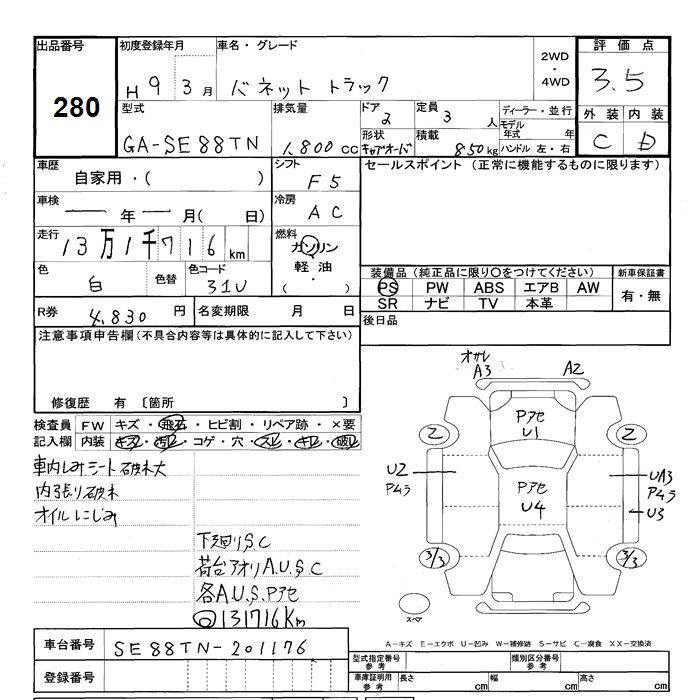 出品番号
280
初度登録年月
H 9 3 月
車名・グレード
バネット トラック
2WD
・
4WD
評価点
3.5
型式
GA-SE88TN
排気量
1,800 cc
ドア
2
定員
3 人
形状
キャブオーバー
積載
850 kg
ディーラー・並行
モデル
年式 年
ハンドル 左・右
外装 内装
C D
車歴
自家用・( )
シフト
F5
セールスポイント (正常に機能するものに限ります)
車検
年 月( 日)
冷房
AC
走行
13万1千716 km
燃料
ガソリン
軽油
( ・ )
色
白
色替
色コード
31U
装備品 (純正品に限り○をつけてください)
PS PW ABS エアB AW
SR ナビ TV 本革
新車保証書
有・無
R券 4,830 円
名変期限 月 日
後日品
注意事項申告欄(不具合内容等は具体的に記入して下さい)
修復歴 有 〔箇所 〕
検査員
記入欄
FW キズ・飛石・ヒビ割・リペア跡・×要
内装 キズ・汚レ・コゲ・穴・スレ・キレ・破レ
車内しみシート破れ大
内張り破れ
オイルにじみ
下廻りS.C
荷台アオリA.U.S.C
各A.U.S.Pアセ
131716Km
オサレ
A3
A2
Pアセ
U1
2
2
U2
Pムラ
Pアセ
U4
UA3
Pムラ
U3
3/3
3/3
スペア
A−キズ E−エクボ U−凹み W−補修跡 S−サビ C−腐食 XX−交換済
車台番号
SE88TN-201176
登録番号
型式指定番号
参考
類別区分番号
参考
車庫証明用
参考
長さ cm
幅 cm
高さ cm